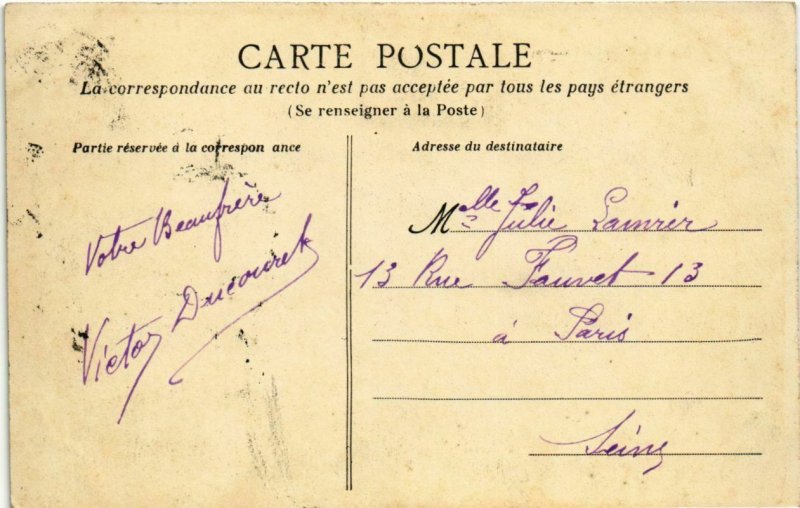 CARTE POSTALE
La correspondance au recto n'est pas acceptée par tous les pays étrangers
(Se renseigner à la Poste)
Partie réservée à la correspon ance
Votre Beaufrère
Victor Ducouret
Adresse du destinataire
Melle Julie
13 Rue Fauvet 13
à Paris
Seine